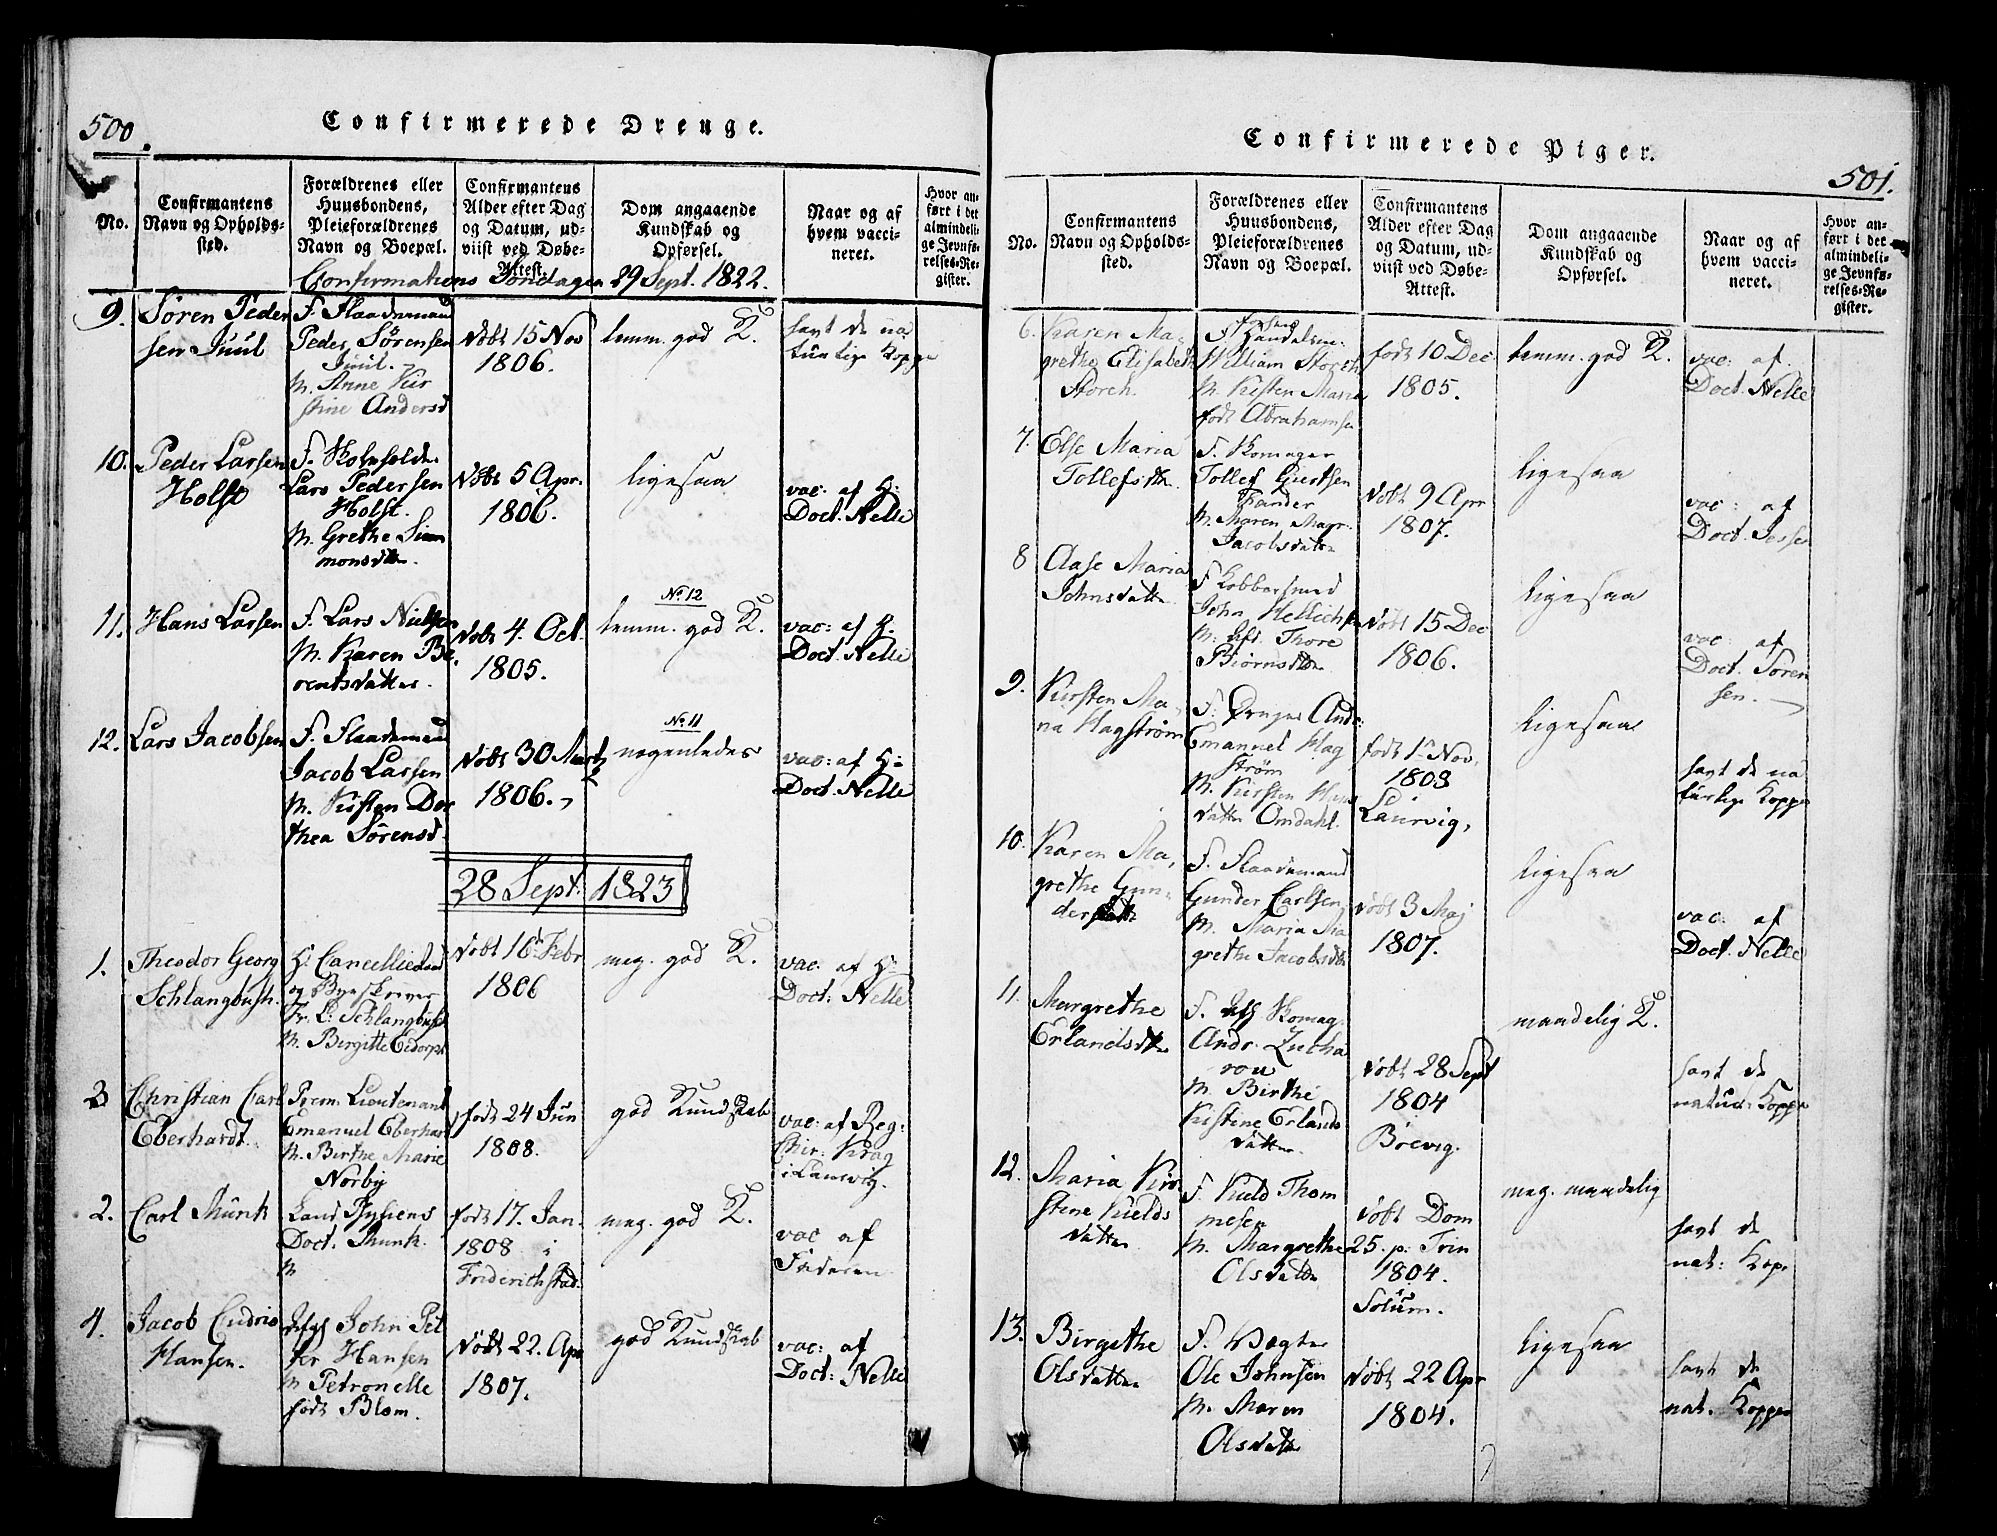 500.
Confirmerede Drenge.
No.
Confirmantens
Navn og Opholds-
sted.
Forældrenes eller
Huusbondens,
Pleieforældrenes
Navn og Boepæl.
Confirmantens
Alder efter Dag
og Datum, ud-
viist ved Døbe-
Attest.
Dom angaaende
Kundskab og
Opførsel.
Naar og af
hvem vacci-
neret.
Hvor an-
ført i det
almindeli-
ge Jevnfø-
relses-Re-
gister.
Confirmations Søndagen 29 Sept. 1822.
9.
Søren Peder
sen Juul
F. Flaademand
Peder Sørensen
Juul.
M. Anne Kir
stine Andersd
døbt 15 Nov
1806.
temm. god K.
havt de na
turlige Koppe
10.
Peder Larsen
Holst
F.
Lars Pedersen
Holst.
M. Grethe Sim
monsdtr.
døbt 5 Apr.
1806.
ligesaa
vac: af H:
Doct. Nelle
11.
Hans Larsen
F. Lars Nielsen
M. Karen Be
rentsdatter.
døbt 4. Oct.
1805.
No. 12
temm. god K.
vac: af H.
Doct. Nelle
12.
Lars Jacobsen
F. Flaademand
Jacob Larsen
M. Kirsten Dor
thea Sørensd.
døbt 30 Marts
1806.
No. 11
nogenledes
vac: af H:
Doct. Nelle
28 Sept. 1823
1.
Theodor Georg
Schlangbush.
H. Cancellieraad
og Byeskriver
Fr. L. Schlangbush
M. Birgitte Eidorph
døbt 16 Febr
1806
meg. god K.
vac. af H:
Doct: Nelle
3
Christian Carl
Eberhardt.
Prem. Lieutenant
Emanuel Eberhar
M. Birthe Marie
Norby
født 24 Jun
1808.
god Kundskab
vac: af Reg:
Chir: Krag
i Laurvig.
2.
Carl Munk
Land Physicus
Doct. Munk.
M
født 17. Jan.
1808 i
Friderichstad.
meg. god K.
vac af
Faderen
4.
Jacob Cudrio
Hansen.
John Pet
ter Hansen
M Petronelle
født Blom.
døbt 22. Apr
1807.
god Kundskab
vac: af
Doct: Nelle
Confirmerede Piger.
501.
No.
Confirmantens
Navn og Opholds-
sted.
Forældrenes eller
Huusbondens,
Pleieforældrenes
Navn og Boepæl.
Confirmantens
Alder efter Dag
og Datum, ud-
viist ved Døbe-
Attest.
Dom angaaende
Kundskab og
Opførsel.
Naar og af
hvem vacci-
neret.
Hvor an-
ført i det
almindeli-
ge Jevnfø-
relses-Re-
gister.
6.
Karen Ma-
grethe Elisabeth
Storch.
F. Handelsm.
William Storch
M. Kirsten Maria
født Abrahamsen
født 10 Dec
1805.
temm. god K.
vac: af
Doct. Nelle
7.
Else Maria
Tollefsdtr.
F. Skomager
Tollef Giertsen
Fander
M. Maren Magr.
Jacobsdatter
døbt 9 Apr
1807.
ligesaa
vac: af
Doct. Jessen
8
Aase Maria
Johnsdatter
F Kobbersmed
John
M: Thore
Biørnsdtr
døbt 15 Dec
1806.
ligesaa
vac: af
Doct. Søren
sen.
9.
Kirsten Ma-
na Hagstrøm
F:
Emanuel Hag
strøm
M. Kirsten Hans
datter Omdahl.
født 1. Nov.
1803
Laurvig,
ligesaa
havt de na
turlige Koppe
10.
Karen Ma-
grethe Gun-
dersdatter
F. Flaademand
Gunder Carlsen
M. Maria Ma
grethe Jacobsdtr
døbt 3 Maj
1807.
ligesaa
vac: af
Doct. Nelle
11.
Margrethe
Erlandsdtr
F. Skomag.
Andr.
M Birthe
Kirstine Erlands
datter.
døbt 28 Sept
1804
Brevig.
maadelig K.
havt de
natur: Koppe
12.
Maria Kir-
stine Kields
datter
F. Kield Thom
mesen
M. Margrethe
Olsdatter
døbt Dom
25. p. Trin
1804.
Solum.
meg. maadelig
havt de
nat: Kopp
13.
Birgithe
Olsdatter
F. Vægter
Ole Johnsen
M. Maren
Olsdatter
døbt 22 Apr
1804.
ligesaa
havt de
nat. Koppe